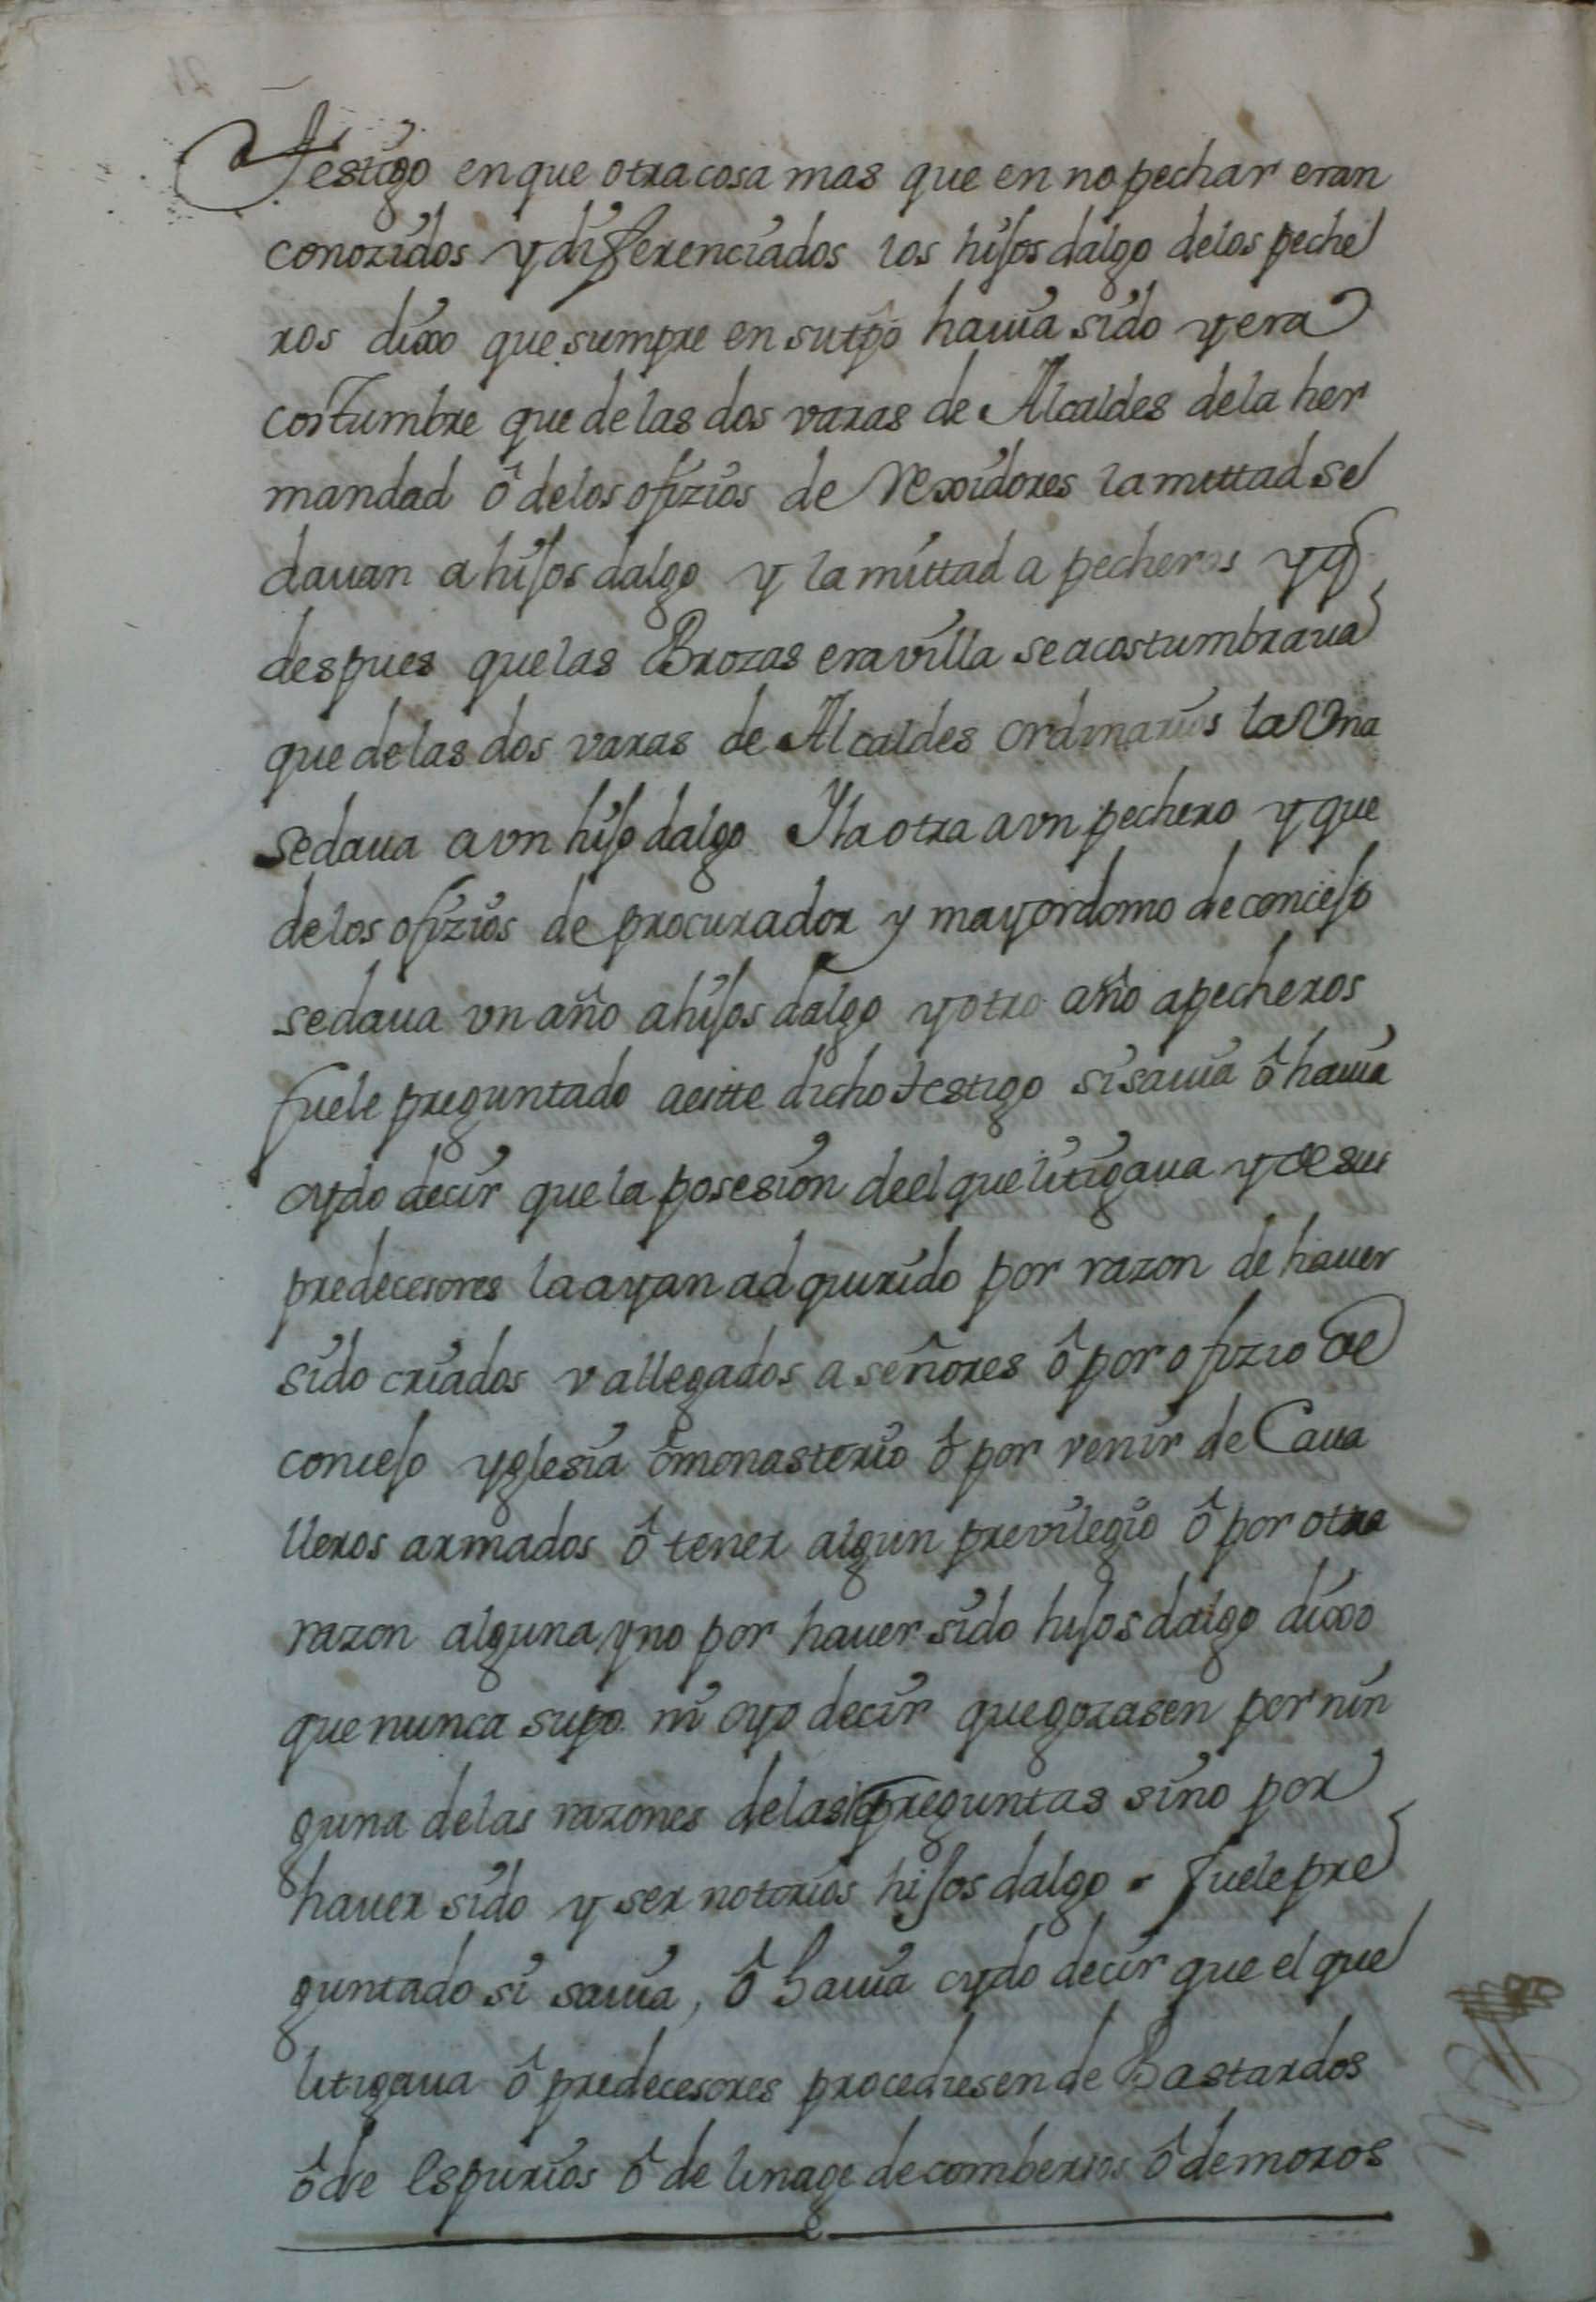 Testigo en que otra cosa mas que en no pechar eran
conozidos y diferenciados los hijos dalgo de los peche
ros dixo que siempre en su tpõ hauia sido y era
costumbre que de las dos varas de Alcaldes de la her
mandad ô de los ofizios de Rexidores la mittad se
dauan a hijos dalgo y la mittad a pecheros y q̃
despues que las Brozas era villa se acostumbraua
que de las dos varas de Alcaldes ordinarios la Vna
se daua a vn hijo dalgo Y la otra a vn pechero y que
de los ofizios de procurador y mayordomo de concejo
se daua vn año a hijos dalgo y otro año a pecheros
fuele preguntado a estte dicho testigo si sauia ô hauia
oydo decir que la posesion de el que litigaua y de sus
predecesores la ayan adquirido por razon de hauer
sido criados v allegados a señores ô por ofizio de
concejo yglesia ô monasterio ô por venir de Caua
lleros armados ô tener algun previlegio ô por otra
razon alguna y no por hauer sido hijos dalgo dixo
que nunca supo ni oyo decir que gozasen por nin
guna de las razones de las preguntas sino por
hauer sido y ser notorios hijos dalgo - fuele pre
guntado si sauia, ô hauia oydo decir que el que
litigaua ô predecesores procediesen de Bastardos
ô de Espurios ô de linage de combersos ô de moros